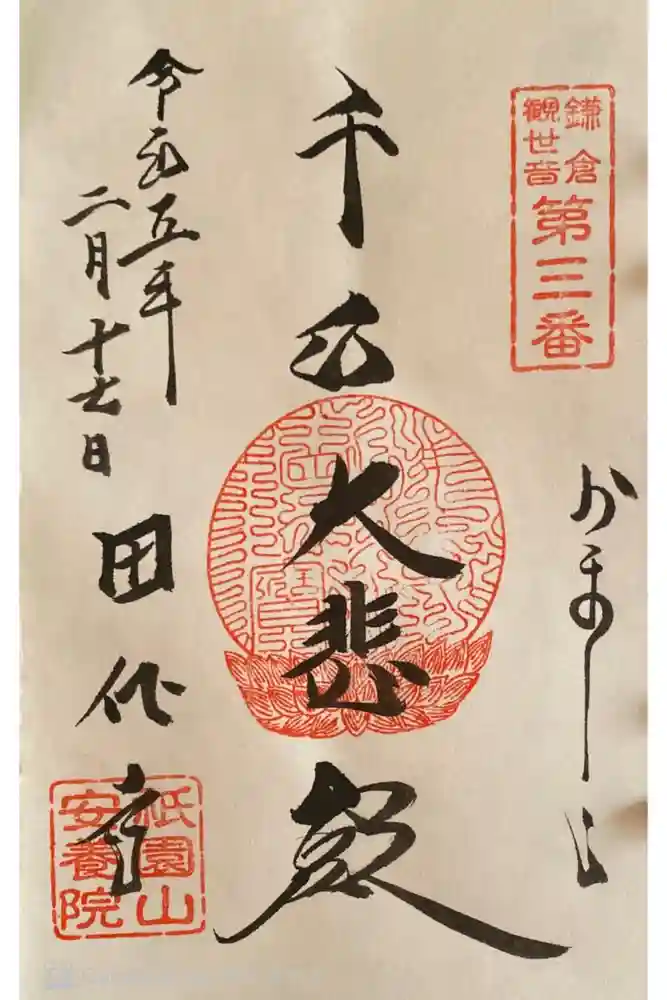 鎌倉
觀世音
第三番
かまくら
千手大悲殿
令和五年
二月十七日
田代堂
祇園山
安養院